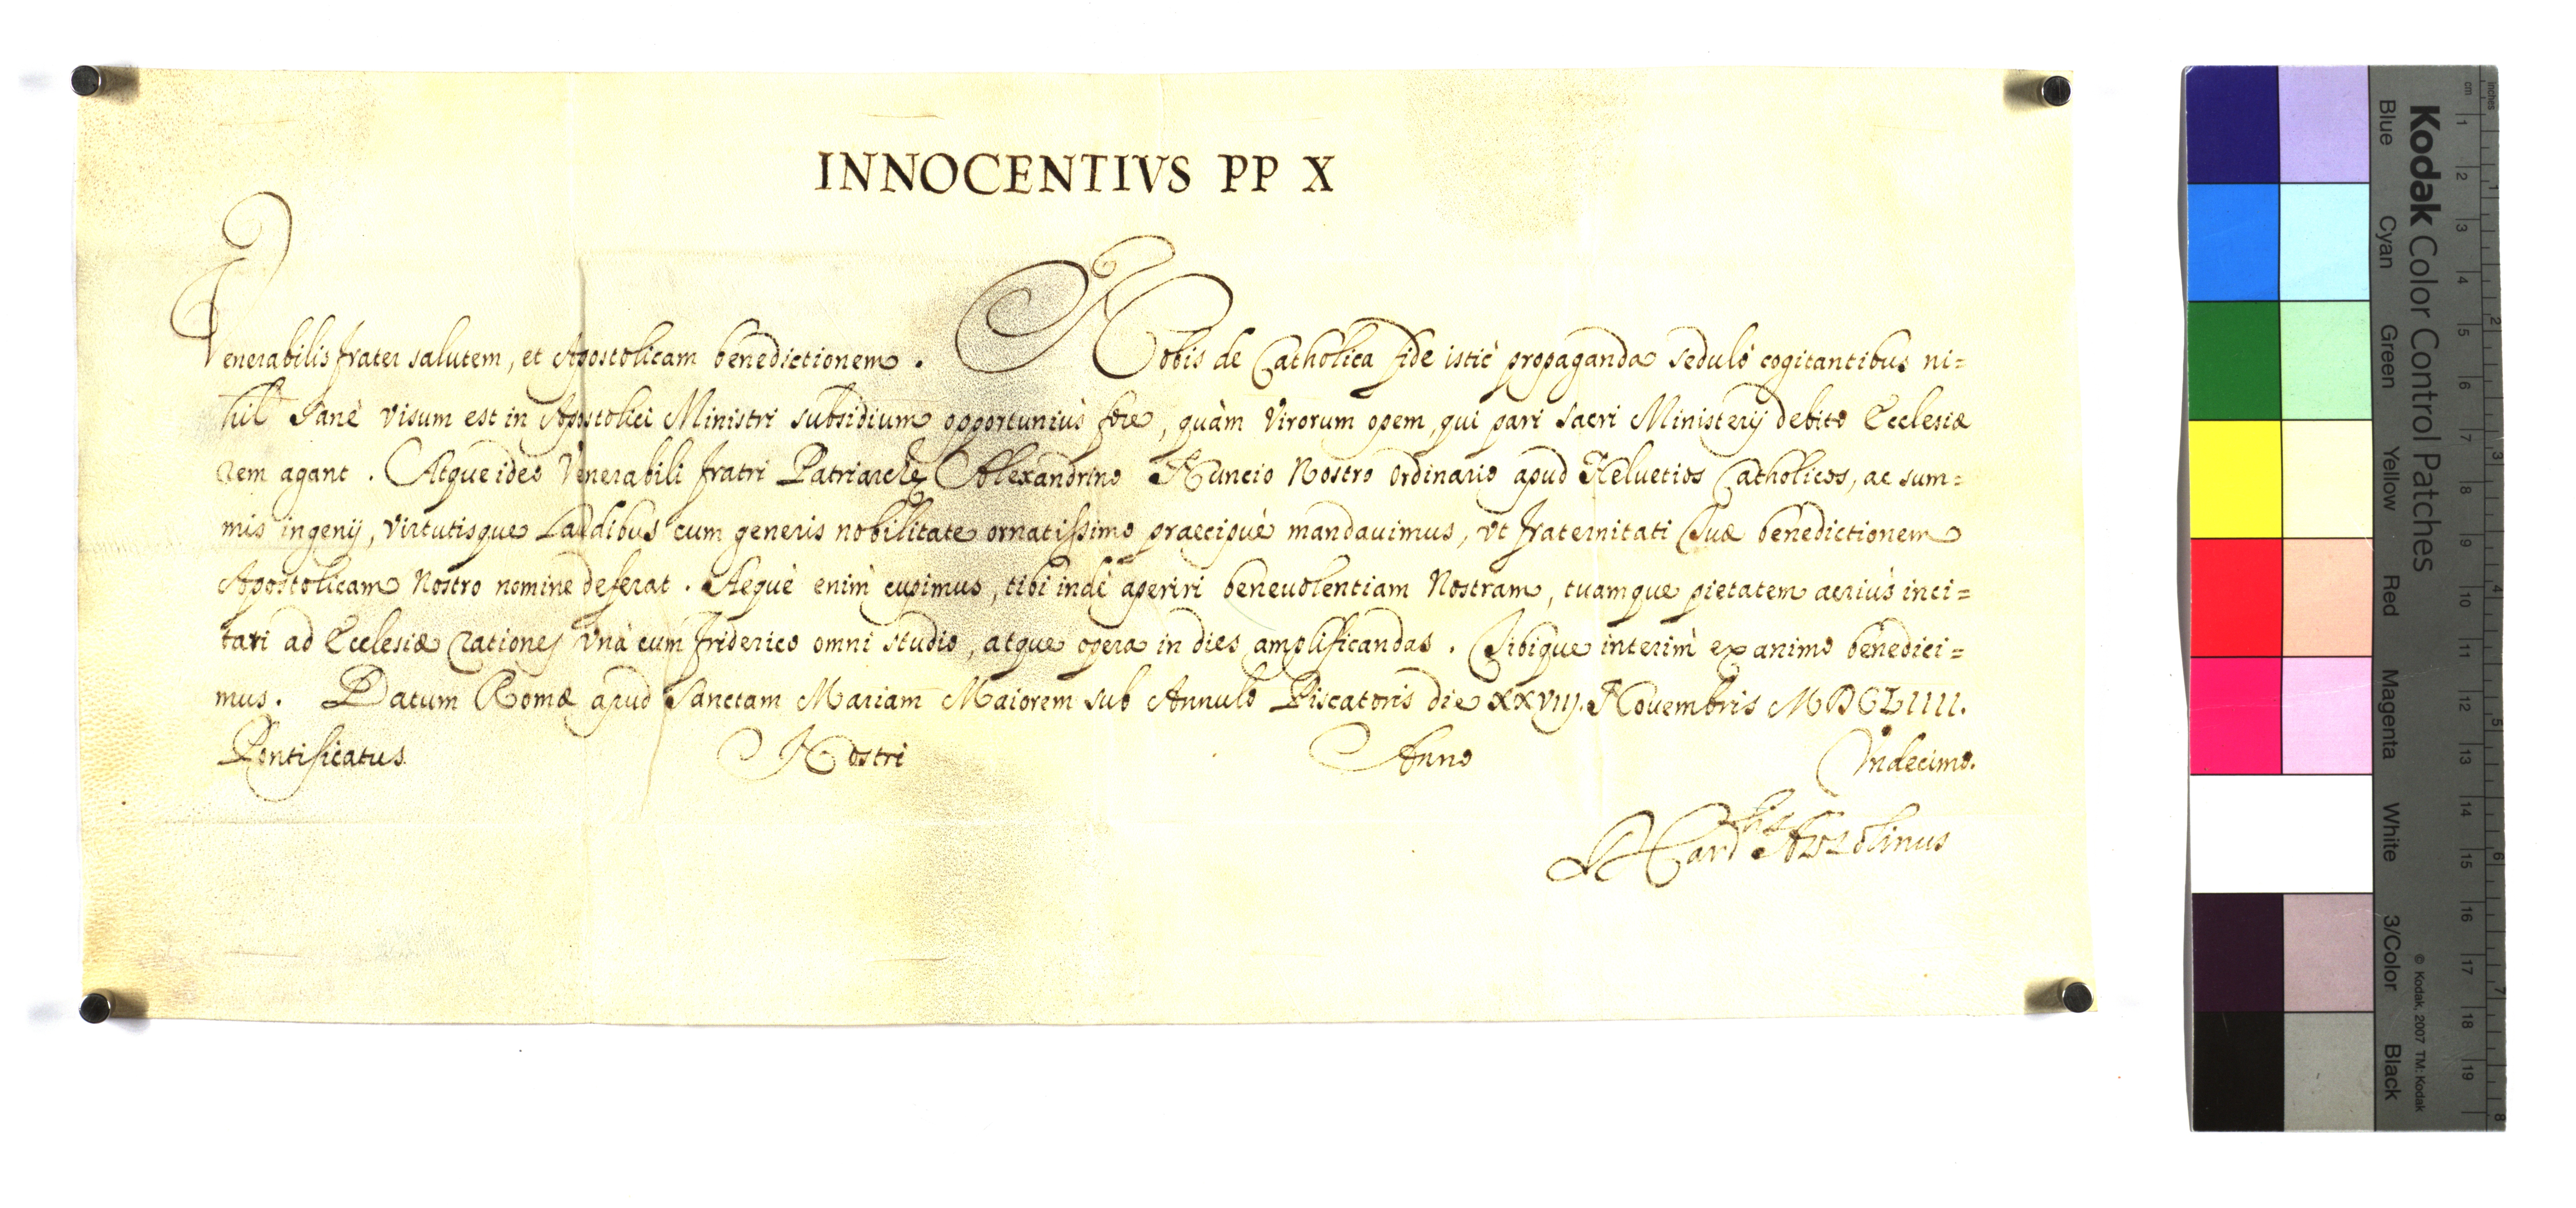 INNOCENTIVS PP X
Venerabilis frater salutem, et Apostolicam benedictionem. Nobis de Catholica fide istìc propaganda sedulò cogitantibus ni=
hil sanè visum est in Apostolici Ministri subsidium opportuniùs fore, quàm virorum opem, qui pari sacri Ministerij debito Ecclesiæ
rem agant. Atque ideo Venerabili fratri Patriarchę Alexandrino Nuncio Nostro ordinario apud Heluetios Catholicos, ac sum=
mis ingenij, virtutisque laudibus cum generis nobilitate ornatissimo praecipuè mandauimus, vt fraternitati Tuæ benedictionem
Apostolicam Nostro nomine deferat. Aequè enim cupimus, tibi indè aperiri beneuolentiam Nostram, tuamque pietatem acriùs inci=
tari ad Ecclesiæ rationes vnà cum Friderico omni studio, atque opera in dies amplificandas. Tibique interim ex animo benedici=
mus. Datum Romæ apud Sanctam Mariam Maiorem sub Annulo Piscatoris die XXVIIJ. Nouembris MDCLIIII.
Pontificatus Nostri Anno Vndecimo.
Azzolinus
Kodak Color Control Patches
Blue Cyan Green Yellow Red Magenta White 3/Color Black
© Kodak, 2007 TM: Kodak
cm 1 2 3 4 5 6 7 8 9 10 11 12 13 14 15 16 17 18 19
Inches 1 2 3 4 5 6 7 8